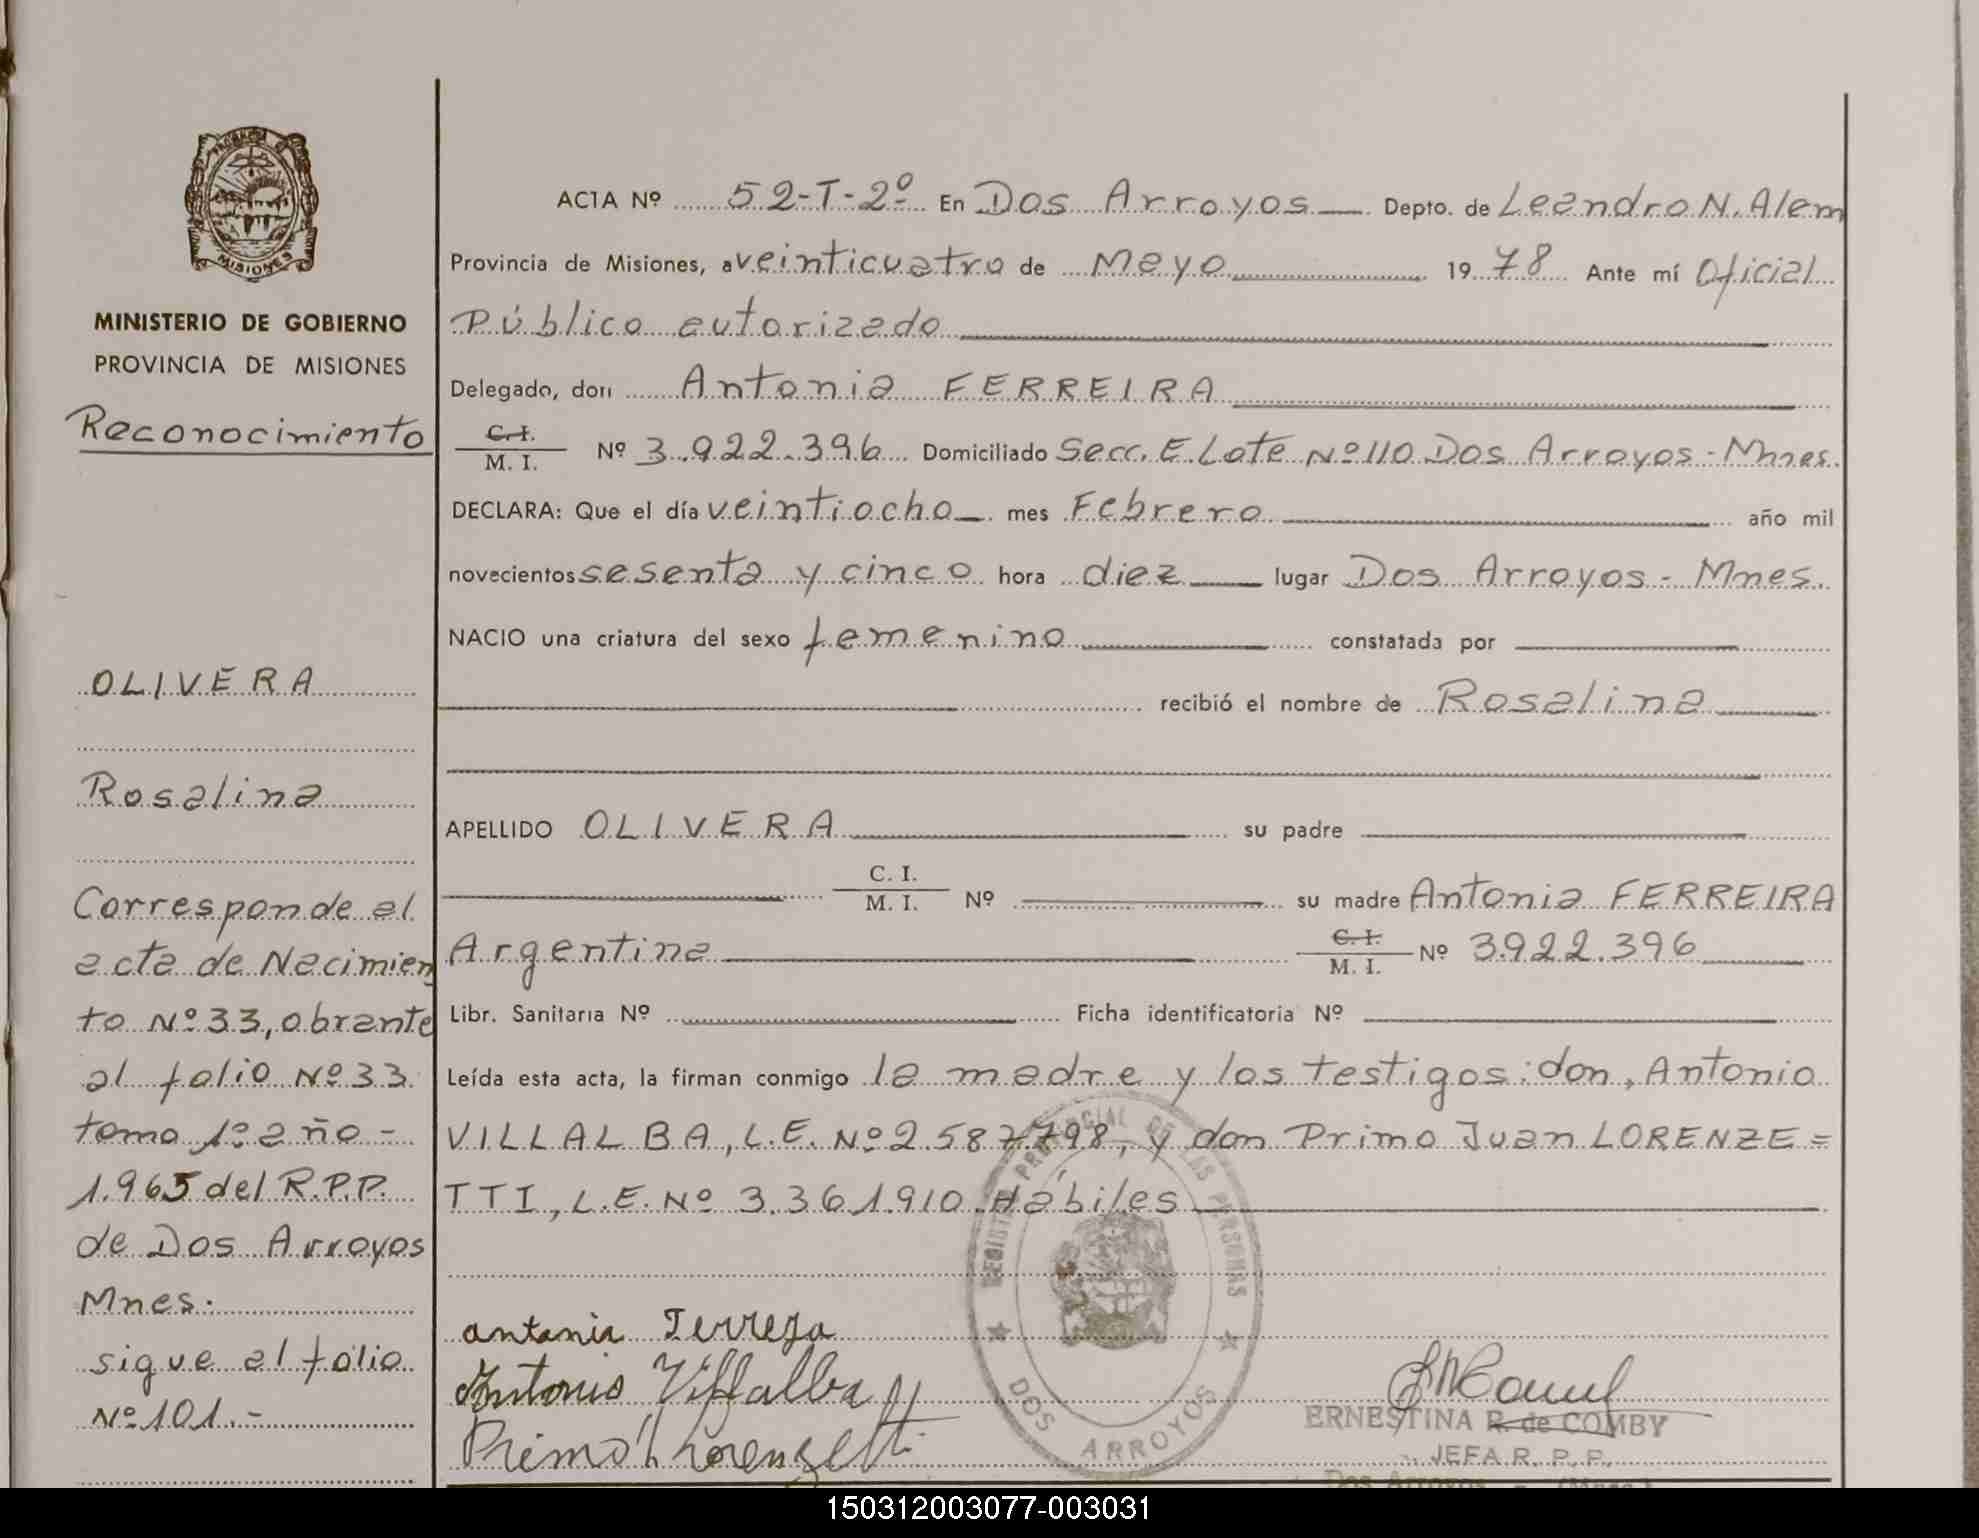 MISIONES
MINISTERIO DE GOBIERNO
PROVINCIA DE MISIONES
Reconocimiento
OLIVERA
Rosalina
Corresponde al
acta de Nacimien
to Nº 33, obrante
al folio Nº 33
tomo 1º año -
1.965 del R.P.P.
de Dos Arroyos
Mnes.
sigue al folio
Nº 101.-
ACTA Nº 52-T-2º En Dos Arroyos Depto. de Leandro N. Alem
Provincia de Misiones, a veinticuatro de Mayo 1978 Ante mí Oficial
Público autorizado
Delegado, don Antonia FERREIRA
C.I. M. I. Nº 3.922.396 Domiciliado Secc. E. Lote Nº 110 Dos Arroyos - Mnes.
DECLARA: Que el día veintiocho mes Febrero año mil
novecientos sesenta y cinco hora diez lugar Dos Arroyos - Mnes.
NACIO una criatura del sexo femenino constatada por
recibió el nombre de Rosalina
APELLIDO OLIVERA su padre
C. I. M. I. Nº su madre Antonia FERREIRA
Argentina C. I. M. I. Nº 3.922.396
Libr. Sanitaria Nº Ficha identificatoria Nº
Leída esta acta, la firman conmigo la madre y los testigos: don, Antonio
VILLALBA, L.E. Nº 2.587.798, y don Primo Juan LORENZE=
TTI, L.E. Nº 3.361.910. Hábiles
REGISTRO PROVINCIAL DE LAS PERSONAS
DOS ARROYOS
antonia Ferreja
Antonio Villalba
Primo Lorenzetti
ERNESTINA R. de COMBY
JEFA R. P. P.
Dos Arroyos - (Mnes.)
150312003077-003031